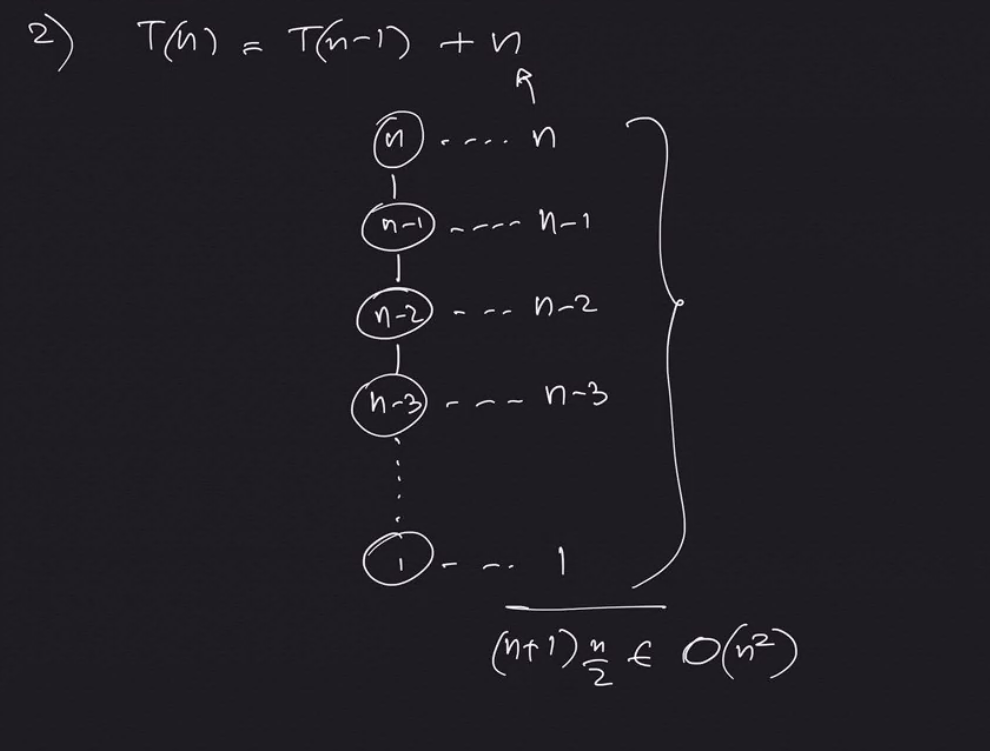 2) T(n) = T(n-1) + n
n .... n
n-1 ---- n-1
n-2 ---- n-2
n-3 ---- n-3
1 ---- 1
(n+1) n/2 ∈ O(n²)